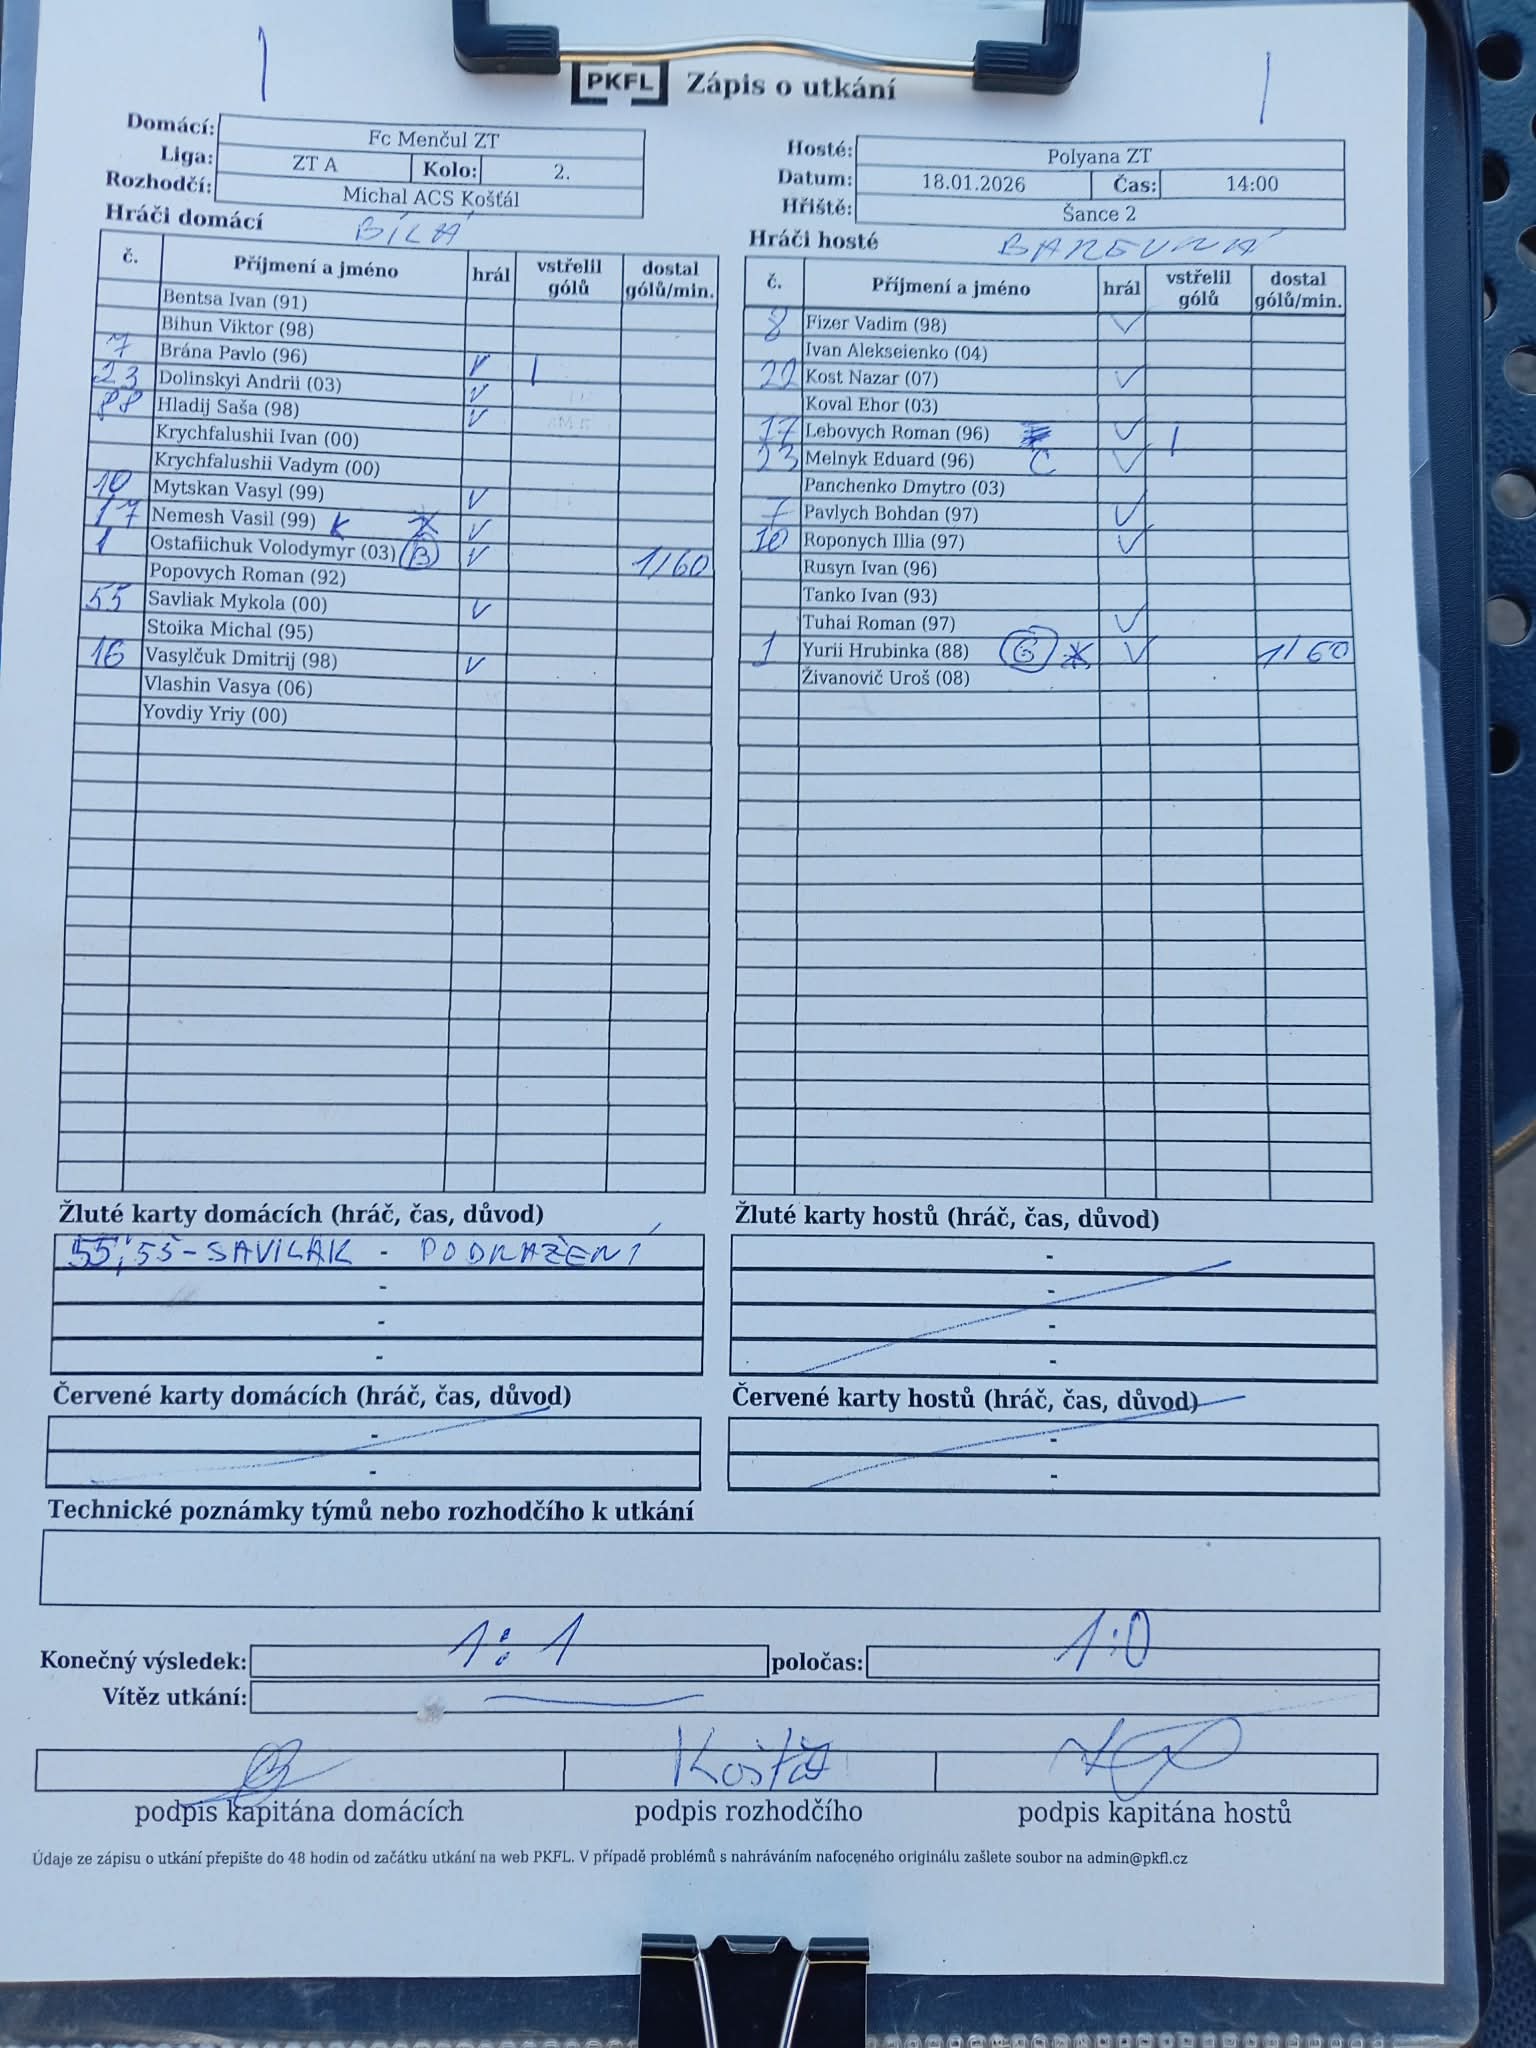 PKFL Zápis o utkání
Domácí: Fc Menčul ZT
Liga: ZT A Kolo: 2.
Rozhodčí: Michal ACS Košťál
Hosté: Polyana ZT
Datum: 18.01.2026 Čas: 14:00
Hřiště: Šance 2
Hráči domácí BÍLÁ
č. Příjmení a jméno hrál vstřelil gólů dostal gólů/min.
Bentsa Ivan (91)
Bihun Viktor (98)
7 Brána Pavlo (96) V 1
23 Dolinskyi Andrii (03) V
88 Hladij Saša (98) V
Krychfalushii Ivan (00)
Krychfalushii Vadym (00)
10 Mytskan Vasyl (99) V
17 Nemesh Vasil (99) K V
1 Ostafiichuk Volodymyr (03) B V 1/60
Popovych Roman (92)
55 Savliak Mykola (00) V
Stoika Michal (95)
16 Vasylčuk Dmitrij (98) V
Vlashin Vasya (06)
Yovdiy Yriy (00)
Hráči hosté BAREVNÁ
č. Příjmení a jméno hrál vstřelil gólů dostal gólů/min.
8 Fizer Vadim (98) V
Ivan Alekseienko (04)
Kost Nazar (07) V
Koval Ehor (03)
17 Lebovych Roman (96) V 1
Melnyk Eduard (96) C V
Panchenko Dmytro (03)
7 Pavlych Bohdan (97) V
10 Roponych Illia (97) V
Rusyn Ivan (96)
Tanko Ivan (93)
Tuhai Roman (97) V
1 Yurii Hrubinka (88) G V 1/60
Živanovič Uroš (08)
Žluté karty domácích (hráč, čas, důvod)
55; 55 - SAVILAK - PODRAŽENÍ
-
-
-
Žluté karty hostů (hráč, čas, důvod)
-
-
-
-
Červené karty domácích (hráč, čas, důvod)
-
-
Červené karty hostů (hráč, čas, důvod)
-
-
Technické poznámky týmů nebo rozhodčího k utkání
Konečný výsledek: 1:1 poločas: 1:0
Vítěz utkání: —
Košťál
podpis kapitána domácích podpis rozhodčího podpis kapitána hostů
Údaje ze zápisu o utkání přepište do 48 hodin od začátku utkání na web PKFL. V případě problémů s nahráváním nafoceného originálu zašlete soubor na admin@pkfl.cz